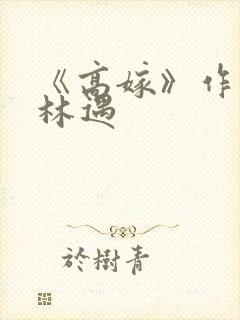 《高嫁》作
林遇
於樹青